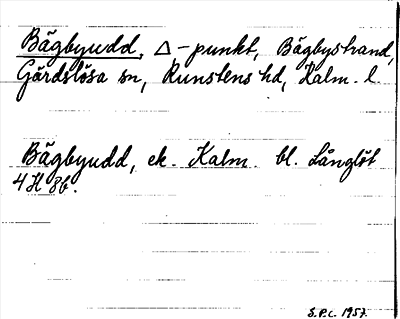 Bägbyudd, △-punkt, Bägbystrand,
Gärdslösa sn, Runstens hd, Kalm. l.
Bägbyudd, ek. Kalm. bl. Långlöt
4 H 8b.
S.P.L. 1957.